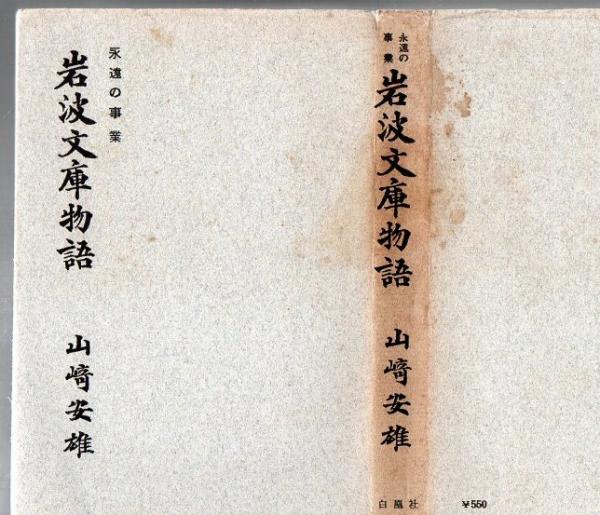 永遠の事業
岩波文庫物語
山﨑安雄
永遠の
事業
岩波文庫物語
山﨑安雄
白凰社
¥550